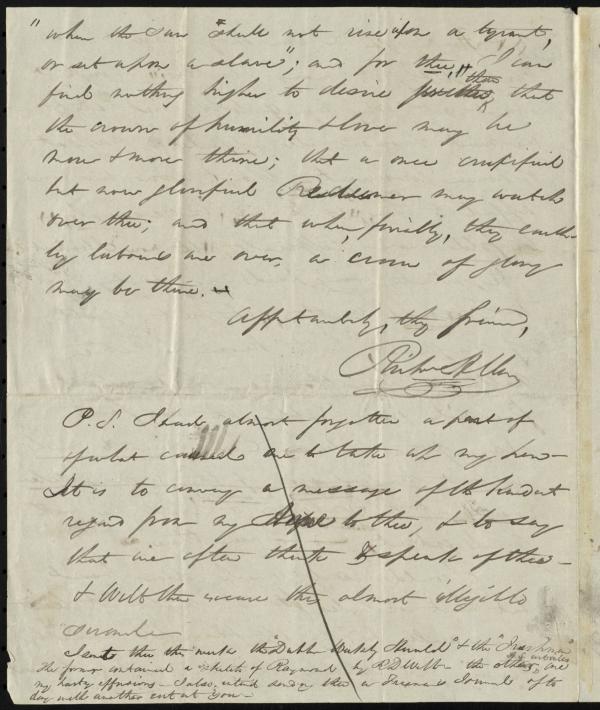 "when the sun "shall not rise upon a tyrant,
or set upon a slave"; and for thee," I can
find nothing higher to desire than that
the crown of humility & love may be
more & more thine; that a once crucified
but now glorified Redeemer may watch
over thee; and that when, finally, thy earth-
ly labours are over, a crown of glory
may be thine.
Affectionately, thy friend,
P.S. I had almost forgotten a part of
what caused me to take up my pen -
It is to convey a message of the kindest
regard from my to thee, & to say
that we often think & speak of thee -
& Wilt thee excuse this almost illegible
scrawl
I send thee this week the "Dublin Weekly Herald" & the "Freeman"
the former contained a sketch of Raymond by R D Webb - the other, one
my hasty effusions - I also intend sending thee a Freeman's Journal of to
day with another cut at you -